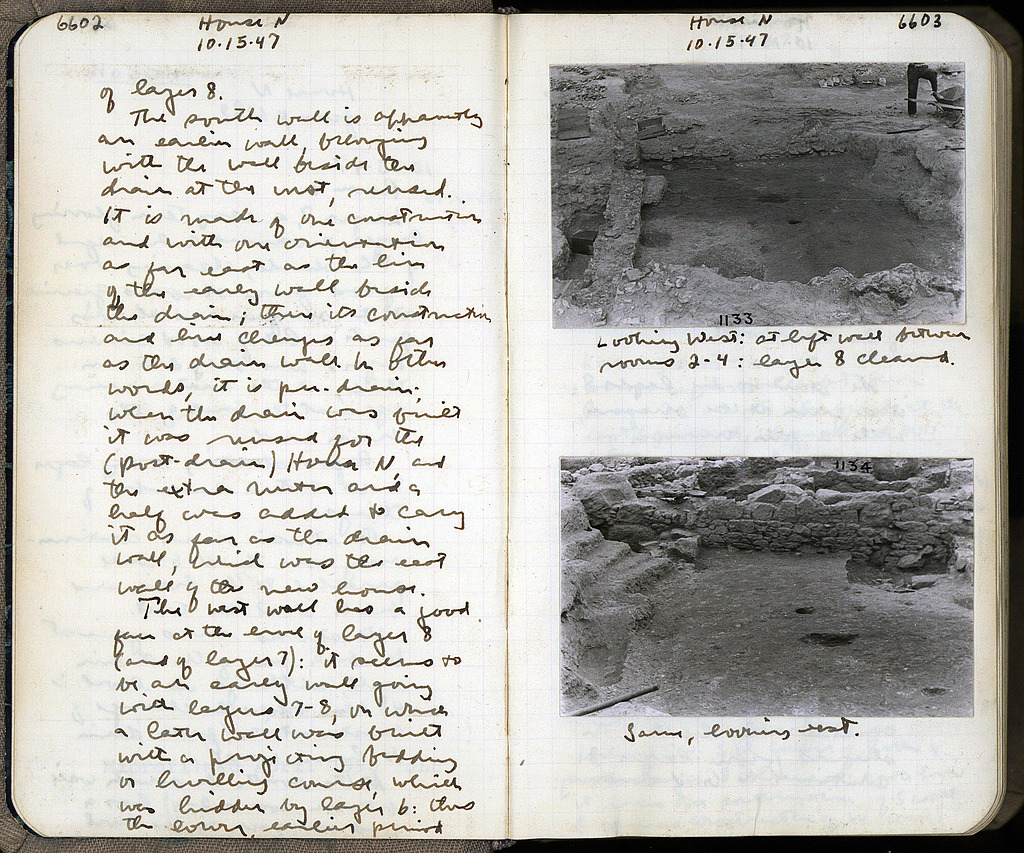 6602
House N
10.15.47
of layer 8.
The south wall is apparently
an earlier wall, belonging
with the wall beside the
drain at the west, reused.
It is made of one construction
and with one orientation
as far east as the line
of the early wall beside
the drain; then its construction
and line changes as far
as the drain wall. In other
words, it is pre-drain;
when the drain was built
it was reused for the
(post-drain) House N, and
the extra meter and a
half was added to carry
it as far as the drain
wall, which was the east
wall of the new house.
The west wall has a good
face at the level of layer 8
(and of layer 7): it seems to
be an early wall going
with layers 7-8, on which
a later wall was built
with a projecting bedding
or levelling course, which
was hidden by layer 6: thus
the lower, earlier period
House N
6603
10.15.47
1133
Looking West: at left wall between
rooms 2-4: layer 8 cleared.
1134
Same, looking east.